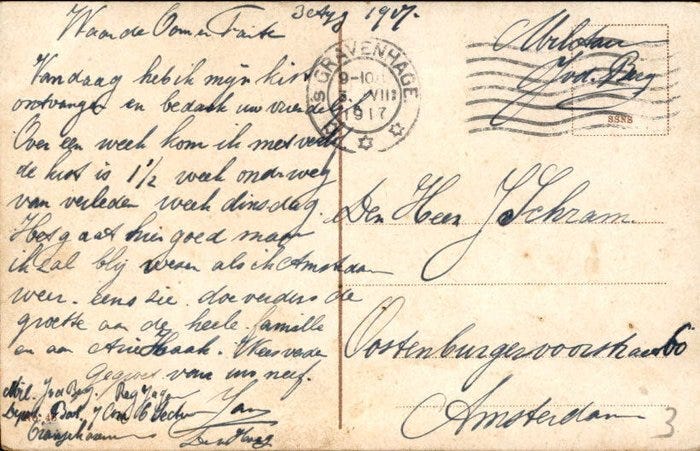 3 Aug 1917.
Waarde Oom en Tante
Vandaag heb ik mijn kist
ontvangen en bedank uw vriendelijk
Over een week kom ik met verlof
de kist is 1½ week onderweg
van verleden week dinsdag.
Het gaat hier goed maar
ik zal blij wezen als ik Amsterdam
weer eens zie. doe verders de
groette aan de heele familie
en aan Arie Haak. Wees verder
Gegroet van uw neef.
Jan
Den Haag
Mil. J. v. d. Berg. Reg Jagers
Depot. Bat. 7 Com
Oranjekazerne
'S GRAVENHAGE
9-10
3. VIII
1917
Militair
J. v. d. Berg
SSNB
Den Heer J Schram.
Oostenburgervoorstraat 60
Amsterdam
3